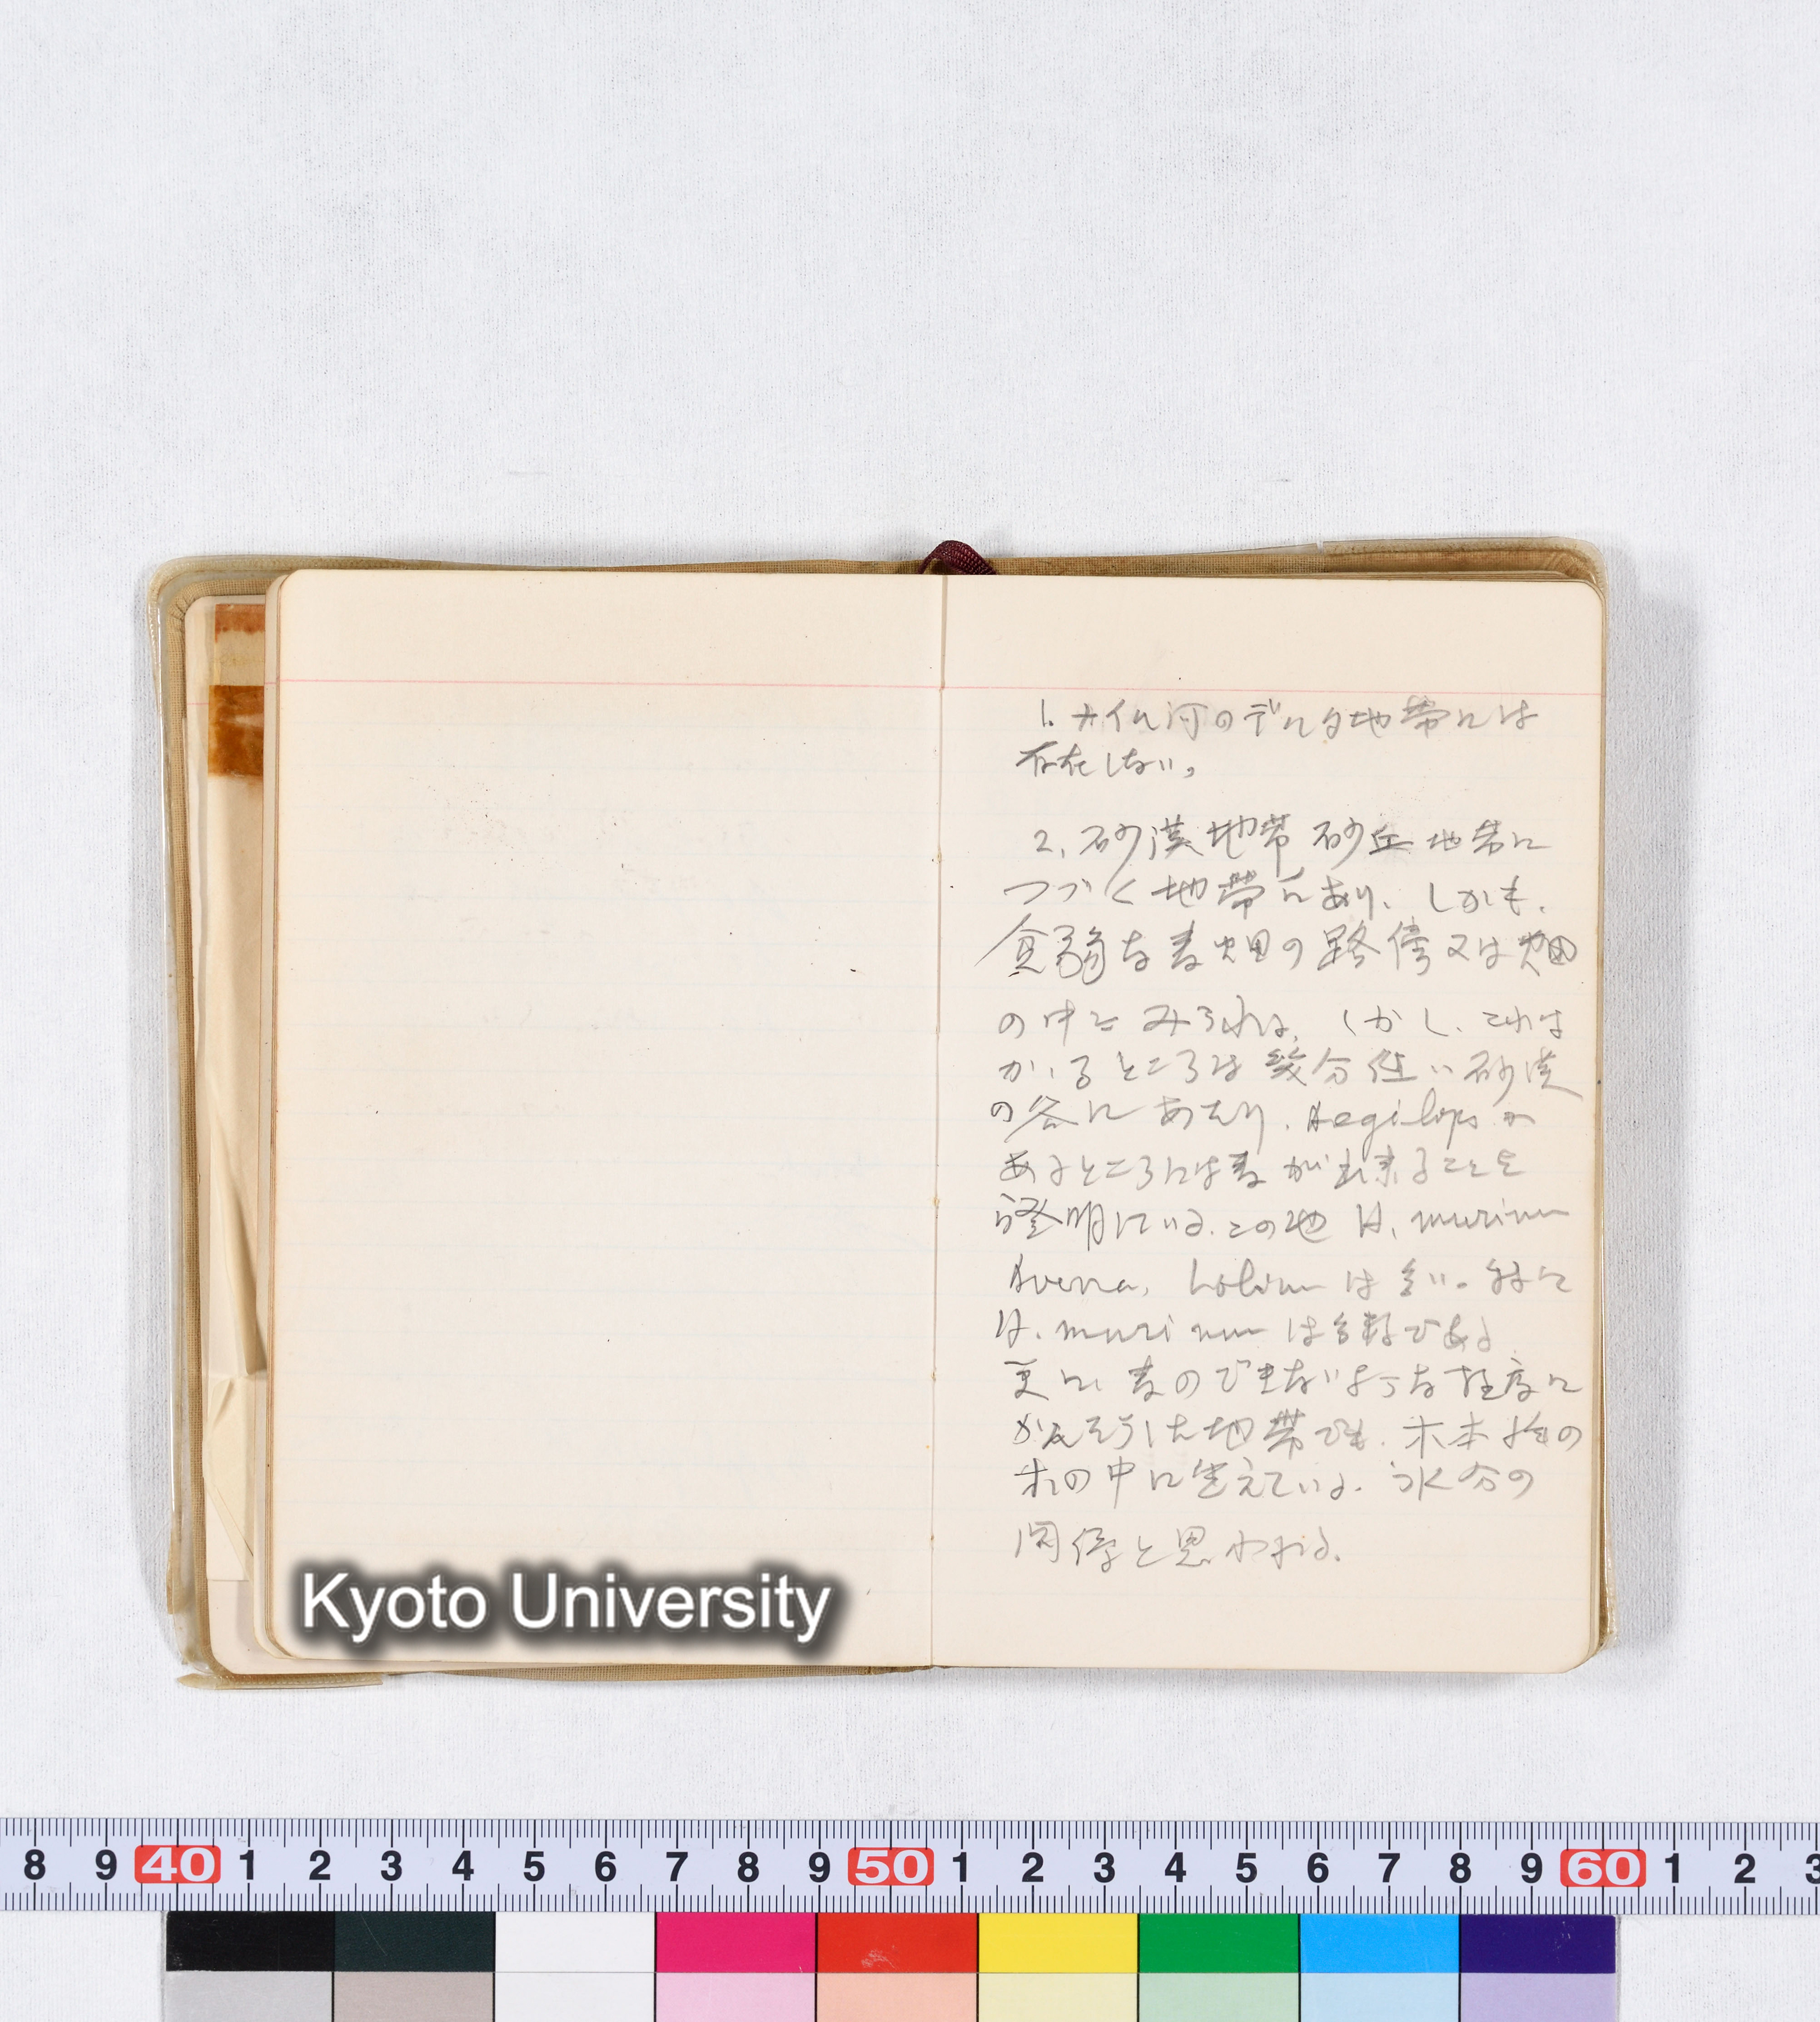 1. ナイル河のデルタ地帯には
存在しない。
2. 砂漠地帯 砂丘地帯に
つづく地帯にあり、しかも、
貧弱な麦畑の路傍又は畑
の中にみられる。しかし、これは
かゝるところは幾分低い砂漠
の谷にあたり、Aegilopsが
あるところには麦が出来ることを
證明している。この他 H. murinum
Avena, Lolium は多い。特に
H. murinum は多数である
更に、麦のできないような程度に
かんそうした地帯でも、木本性の
木の中に生えている。水分の
関係と思われる。
Kyoto University
8 9 40 1 2 3 4 5 6 7 8 9 50 1 2 3 4 5 6 7 8 9 60 1 2 3